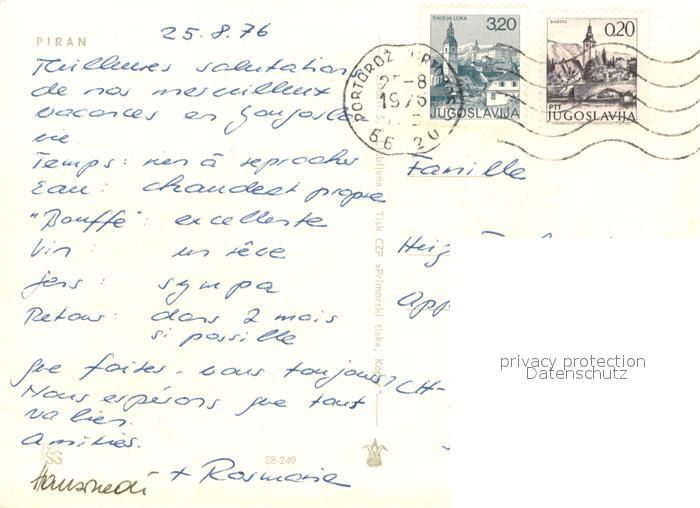 PIRAN
25.8.76
Meilleures salutation
de nos merveilleux
vacances en Yougosla
vie.
Temps: rien à reprocher
Eau: chaude et propre
"Bouffe": excellente
Vin: un rêve
Gens: sympa
Retour: dans 2 mois
si possible
Que faites-vous toujours?
Nous espérons que tout
va bien.
Amitiés.
Hansruedi + Rosmarie
ŠKOFJA LOKA
3,20
JUGOSLAVIJA
BOHINJ
0.20
PTT
JUGOSLAVIJA
PORTOROŽ
25-8
1976
66320
Tisk ČZP »Primorski tisk«, Koper
Famille
CH-
38-249
privacy protection
Datenschutz